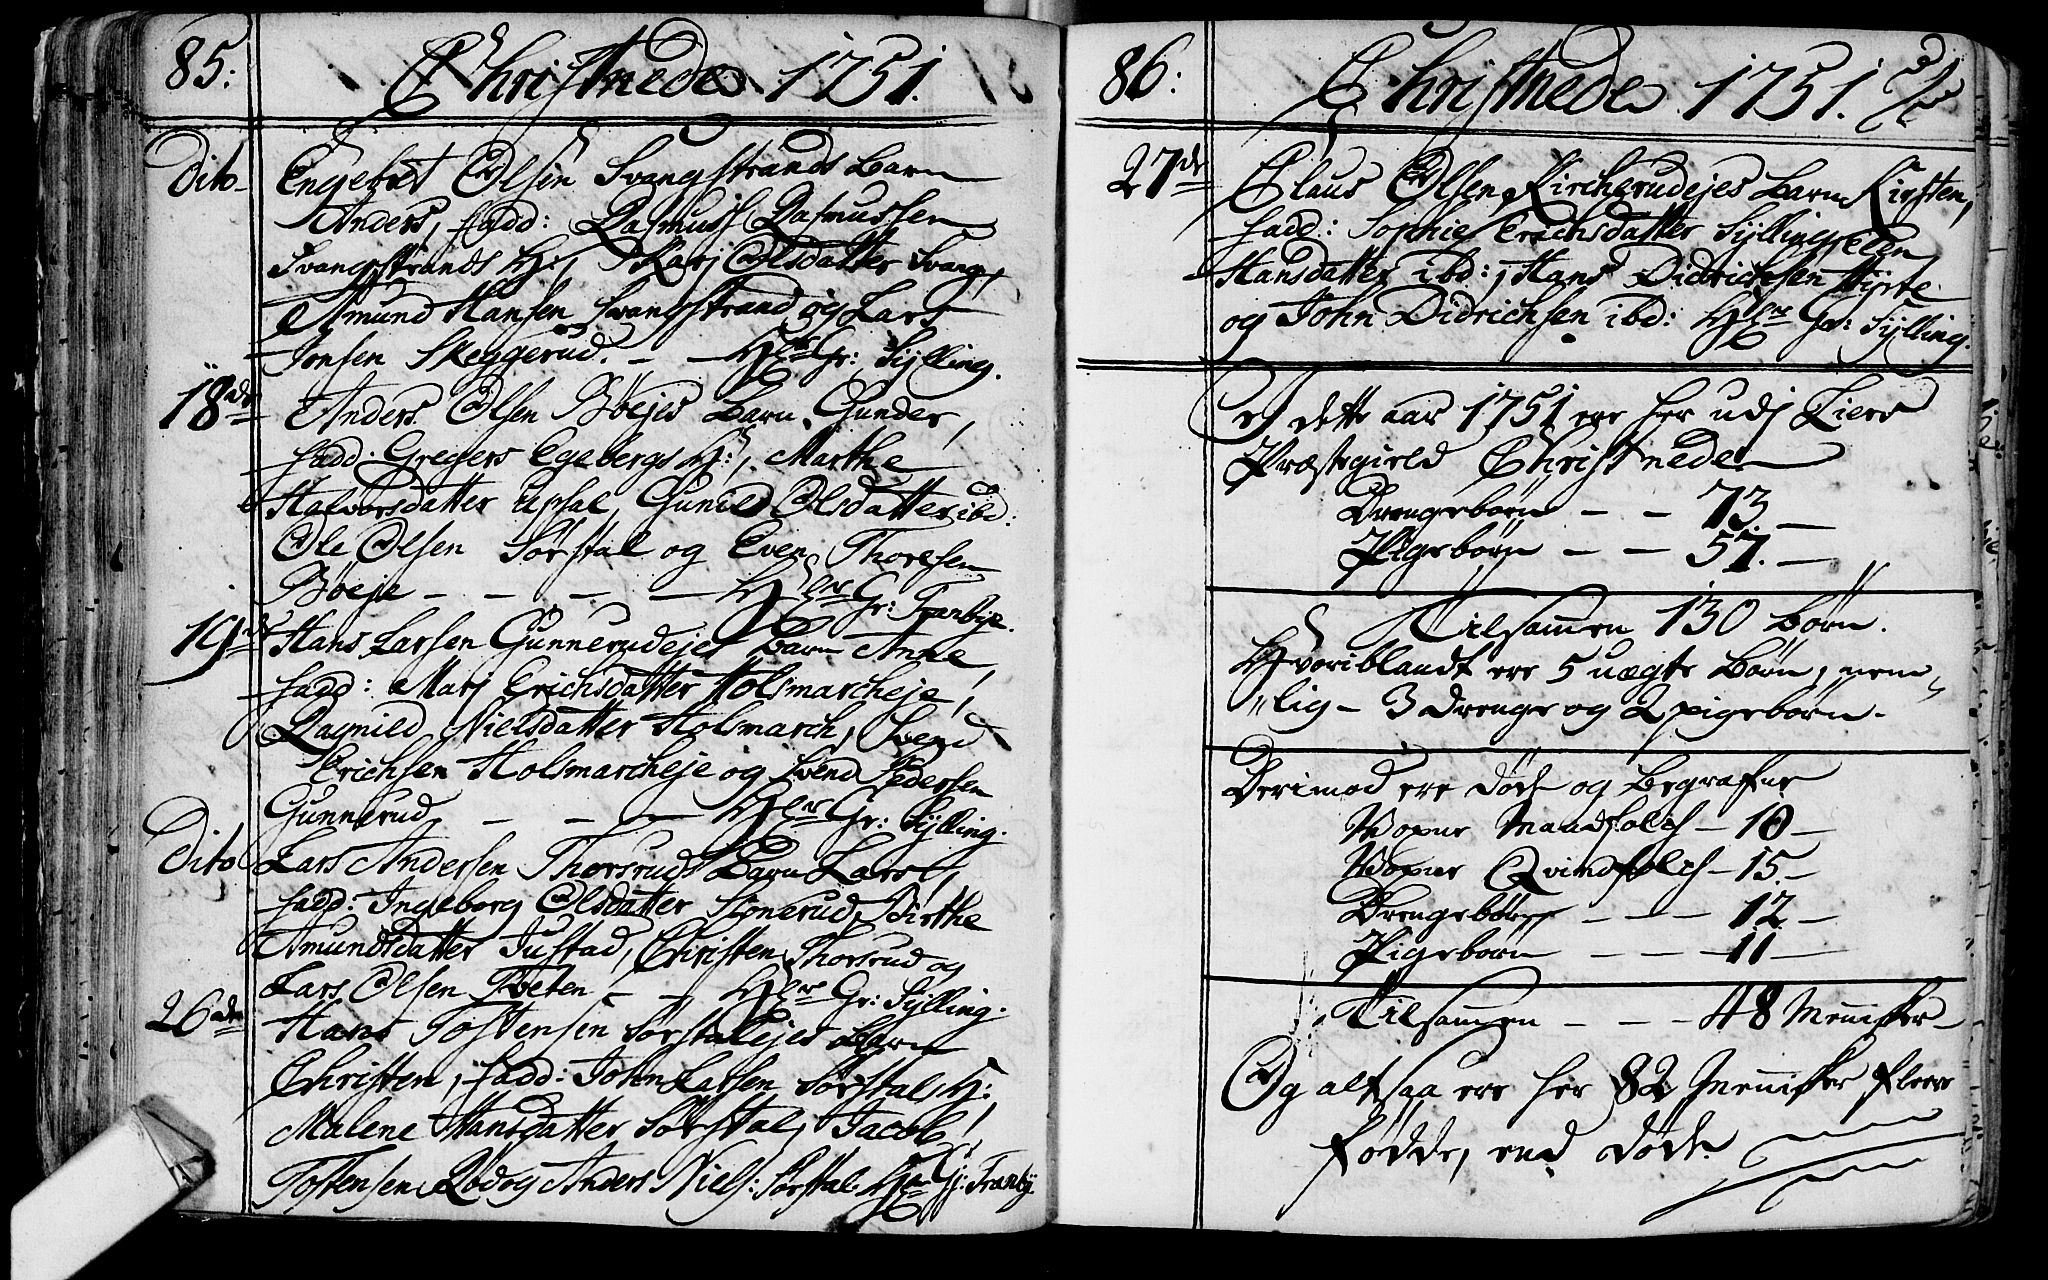 85: Christnede 1751.
Dito Engebret Olsen Svangstrands Barn
Anders, fadd: Rasmus Rasmussen
Svangstrands H:, Kari Olsdatter Svang,
Amund Hansen Svangstrand og Lars
Jonsen Skeggerud. — — Gr: Sylling.
18de Anders Olsen Bøejes Barn Gunder,
fadd: Gregers Egebergs H:, Marthe
Halvorsdatter Upsal, Gunild Olsdatter ibd:
Ole Olsen Sørstal og Even Thoresen
Bøeje — — — — Gr: Franbye.
19de Hans Larsen Gunnerudejes Barn Anne,
fadd: Mari Erichsdatter Holsmarcheje,
Ragnild Nielsdatter Holsmarch, Svend
Erichsen Holsmarcheje og Svend Pedersen
Gunnerud — — — Gr: Sylling.
Dito Lars Andersen Thorsruds Barn Lars,
fadd: Ingeborg Olsdatter Skonerud, Birthe
Amundsdatter Justad, Christen Thorsrud og
Lars Olsen Tveten — — Gr: Sylling.
26de Hans Tostensen Sørstalejes Barn
Christen, fadd: John Larsen Sørstals H:
Malene Hansdatter Sørstal, Jacob
Tostensen Rød og Anders Niels: Sørstal. Gr: Franby
86: Christnede 1751.
27de Claus Olsen Kircherudejes Barn Kirsten,
fadd: Sophie Erichsdatter Sylling, Eden
Hansdatter ibd:, Hans Didrichsen
og John Didrichsen ibd: Gr: Sylling.
I dette aar 1751 ere her udj Liers
Præstegield Christnede
Drengebørn — — 73. —
Pigebørn — — 57. —
Tilsamen 130 Børn.
Hvoriblandt ere 5 uægte Børn, nem-
lig — 3 drenge og 2 pigebørn.
Derimod ere døde og Begrafne
Voxne Mandfolch — 10 —
Voxne Qvindfolch — 15. —
Drengebørn — — — 12 —
Pigebørn — — — 11 —
Tilsamen — — — 48 Menisker
Og altsaa ere her 82 Menisker fleere
fødde, end døde.